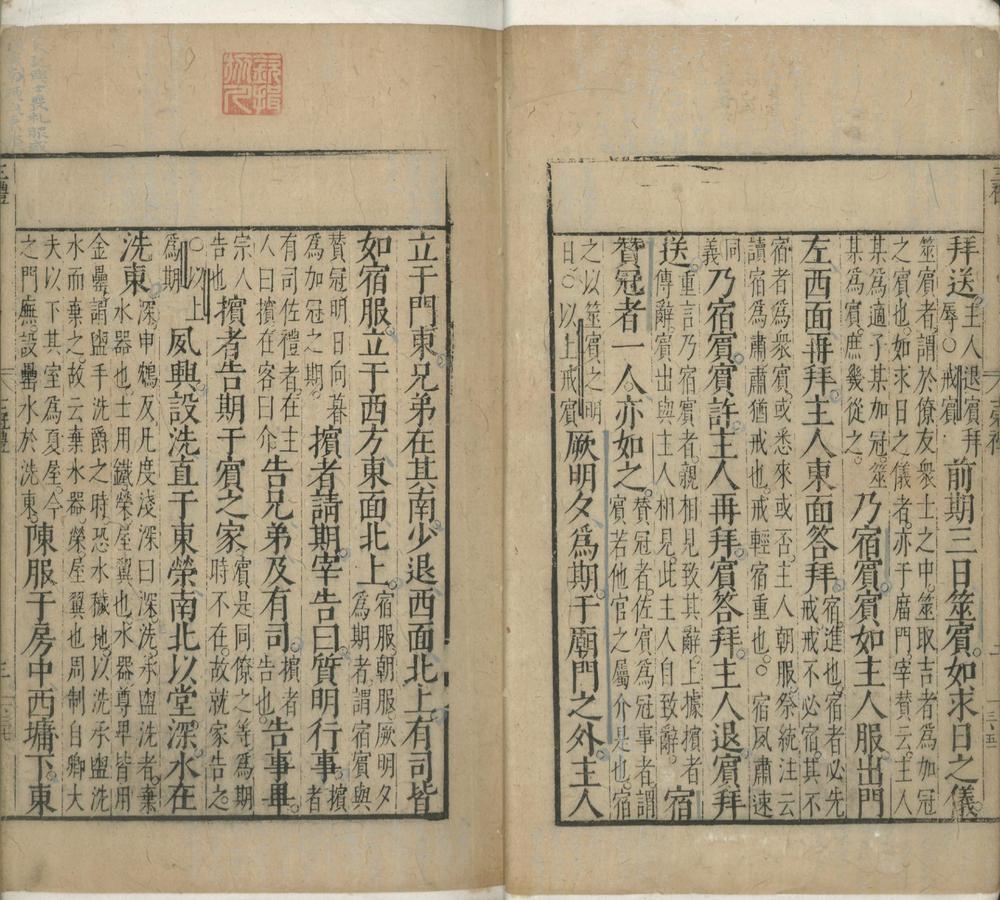 拜送。主人退賓拜
辱○戒賓
前期三日筮賓。如求日之儀。
筮賓者謂於僚友衆士之中。筮取吉者爲加冠
之賓也。如求日之儀者。亦于廟門宰賛云主人
某爲適子某加冠筮
某爲賓。庶幾從之。
乃宿賓賓如主人服出門
左西面再拜。主人東面答拜。宿進也宿者必先
戒戒不必宿其不
宿者爲衆賓。或悉來或否。主人朝服。祭統注云
讀宿爲肅肅猶戒也。戒輕宿重也。○宿夙肅速
同
義
乃宿賓。賓許主人再拜。賓答拜。主人退賓拜
送。重言乃宿賓者。親相見致其辭。上據擯者
傳辭。賓出與主人相見。此主人自致辭
宿
贊冠者一人亦如之。賛冠者。佐賓爲冠事者。謂
賓若他官之屬介是也。宿
之以筮賓之明
日○以上戒賓
厥明夕爲期。于廟門之外。主人
立于門東。兄弟在其南。少退西面北上。有司皆
如宿服。立于西方東面北上。宿服。朝服。厥明夕
爲期者。謂宿賓與
賛冠明日向暮
爲加冠之期。
擯者請期。宰告曰。質明行事。擯
者
有司佐禮者。在主
人曰擯在客曰介
告兄弟及有司。擯者
告也。
告事畢。
宗人
告也
擯者告期于賓之家
賓是同僚之等。爲期
時不在。故就家告之。
○以上
爲期
夙興設洗直于東榮南北以堂深。水在
洗東。深。申鴆反。凡度淺深曰深。洗。承盥洗者。棄
水器也。士用鐵。榮。屋翼也。水器尊卑皆用
金罍。謂盥手洗爵之時。恐水穢地。以洗承盥洗
水而棄之。故云棄水器。榮屋翼也周制自卿大
夫以下其室爲夏屋。今
之門廡。設罍水於洗東。
陳服于房中西墉下。東